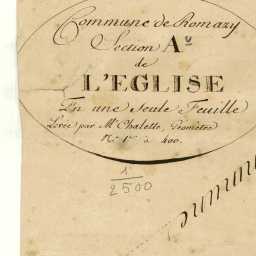 Commune de Romazy
Section A.u
de
L'EGLISE
En une seule Feuille
Levée par Mr. Chalette, Géomètre
1
2500
mmune